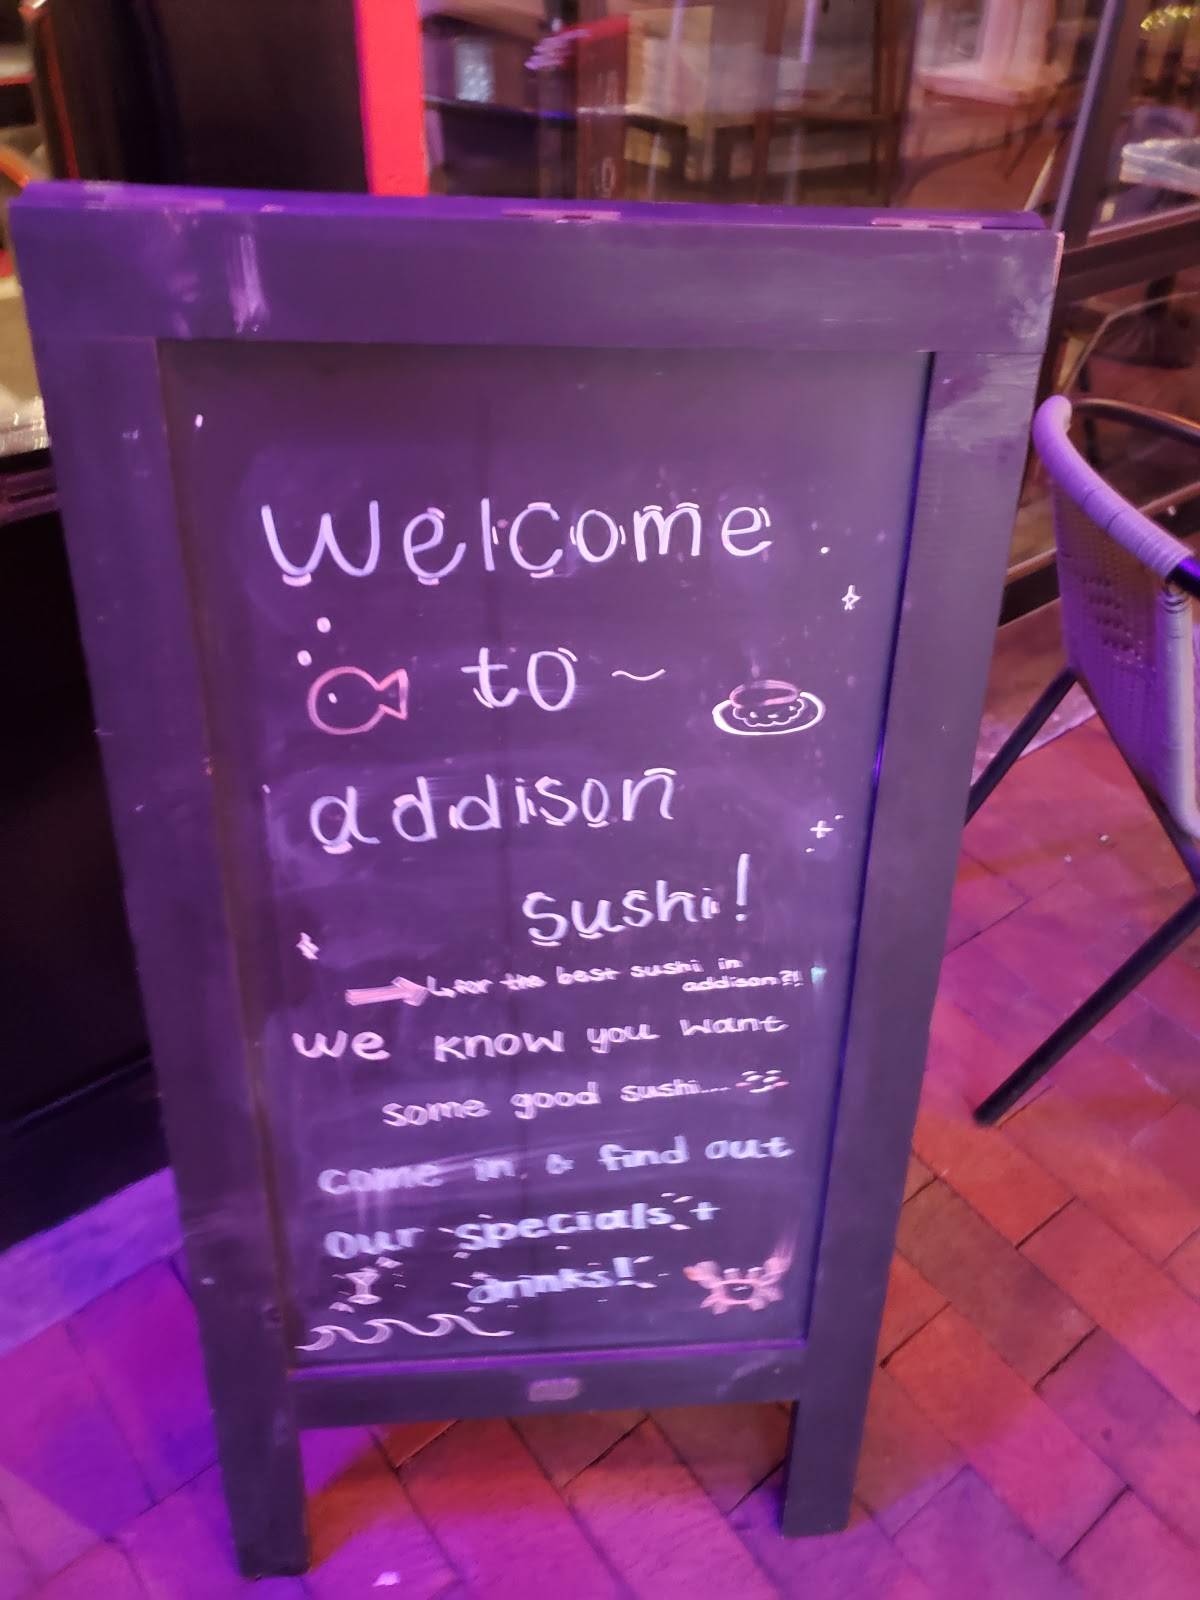 Welcome
to ~
addison
sushi!
↳ for the best sushi in
addison?!!
we know you want
some good sushi....
come in & find out
our specials +
drinks!